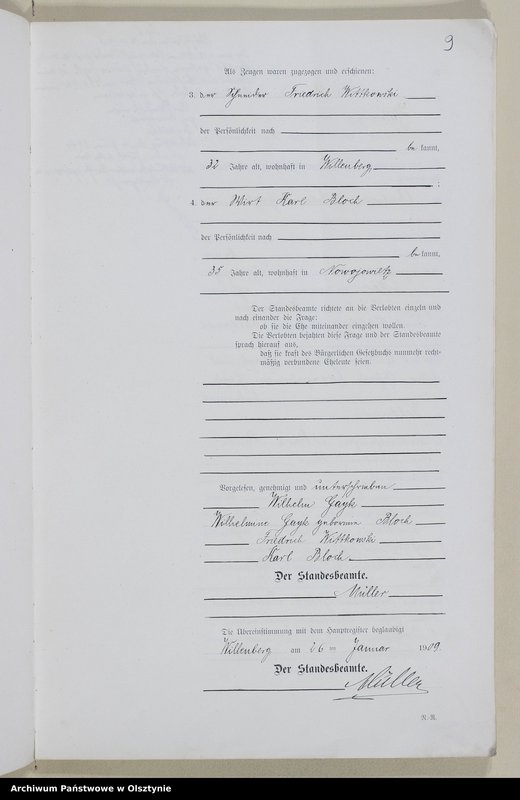 9
Als Zeugen waren zugezogen und erschienen:
3. der Schneider Friedrich Wittkowski
der Persönlichkeit nach
be kannt,
32 Jahre alt, wohnhaft in Willenberg
;
4. der Wirt Karl Bloch
der Persönlichkeit nach
be kannt,
35 Jahre alt, wohnhaft in Nowojowietz
Der Standesbeamte richtete an die Verlobten einzeln und
nach einander die Frage:
ob sie die Ehe miteinander eingehen wollen.
Die Verlobten bejahten diese Frage und der Standesbeamte
sprach hierauf aus,
daß sie kraft des Bürgerlichen Gesetzbuchs nunmehr recht-
mäßig verbundene Eheleute seien.
Vorgelesen, genehmigt und unterschrieben
Wilhelm Gayk
Wilhelmine Gayk geborene Bloch
Friedrich Wittkowski
Karl Bloch
Der Standesbeamte.
Müller
Die Übereinstimmung mit dem Hauptregister beglaubigt
Willenberg am 26 ten Januar 1909.
Der Standesbeamte.
Müller
N. R.
Archiwum Państwowe w Olsztynie